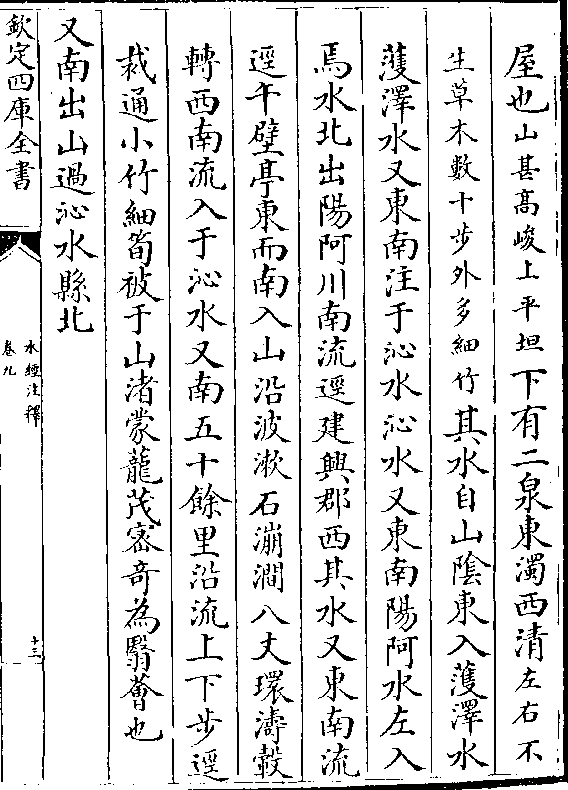 屋也山甚高峻上平坦下有二泉東濁西清左右不
生草木數十步外多細竹其水自山隂東入䕶澤水
䕶澤水又東南注于沁水沁水又東南陽阿水左入
焉水北出陽阿川南流逕建興郡西其水又東南流
逕午壁亭東而南入山沿波漱石漰澗八丈環濤轂
轉西南流入于沁水又南五十餘里沿流上下步逕
裁通小竹細筍被于山渚蒙蘢茂宻竒為翳薈也
又南出山過沁水縣北
欽定四庫全書
水經注釋
卷九
十三